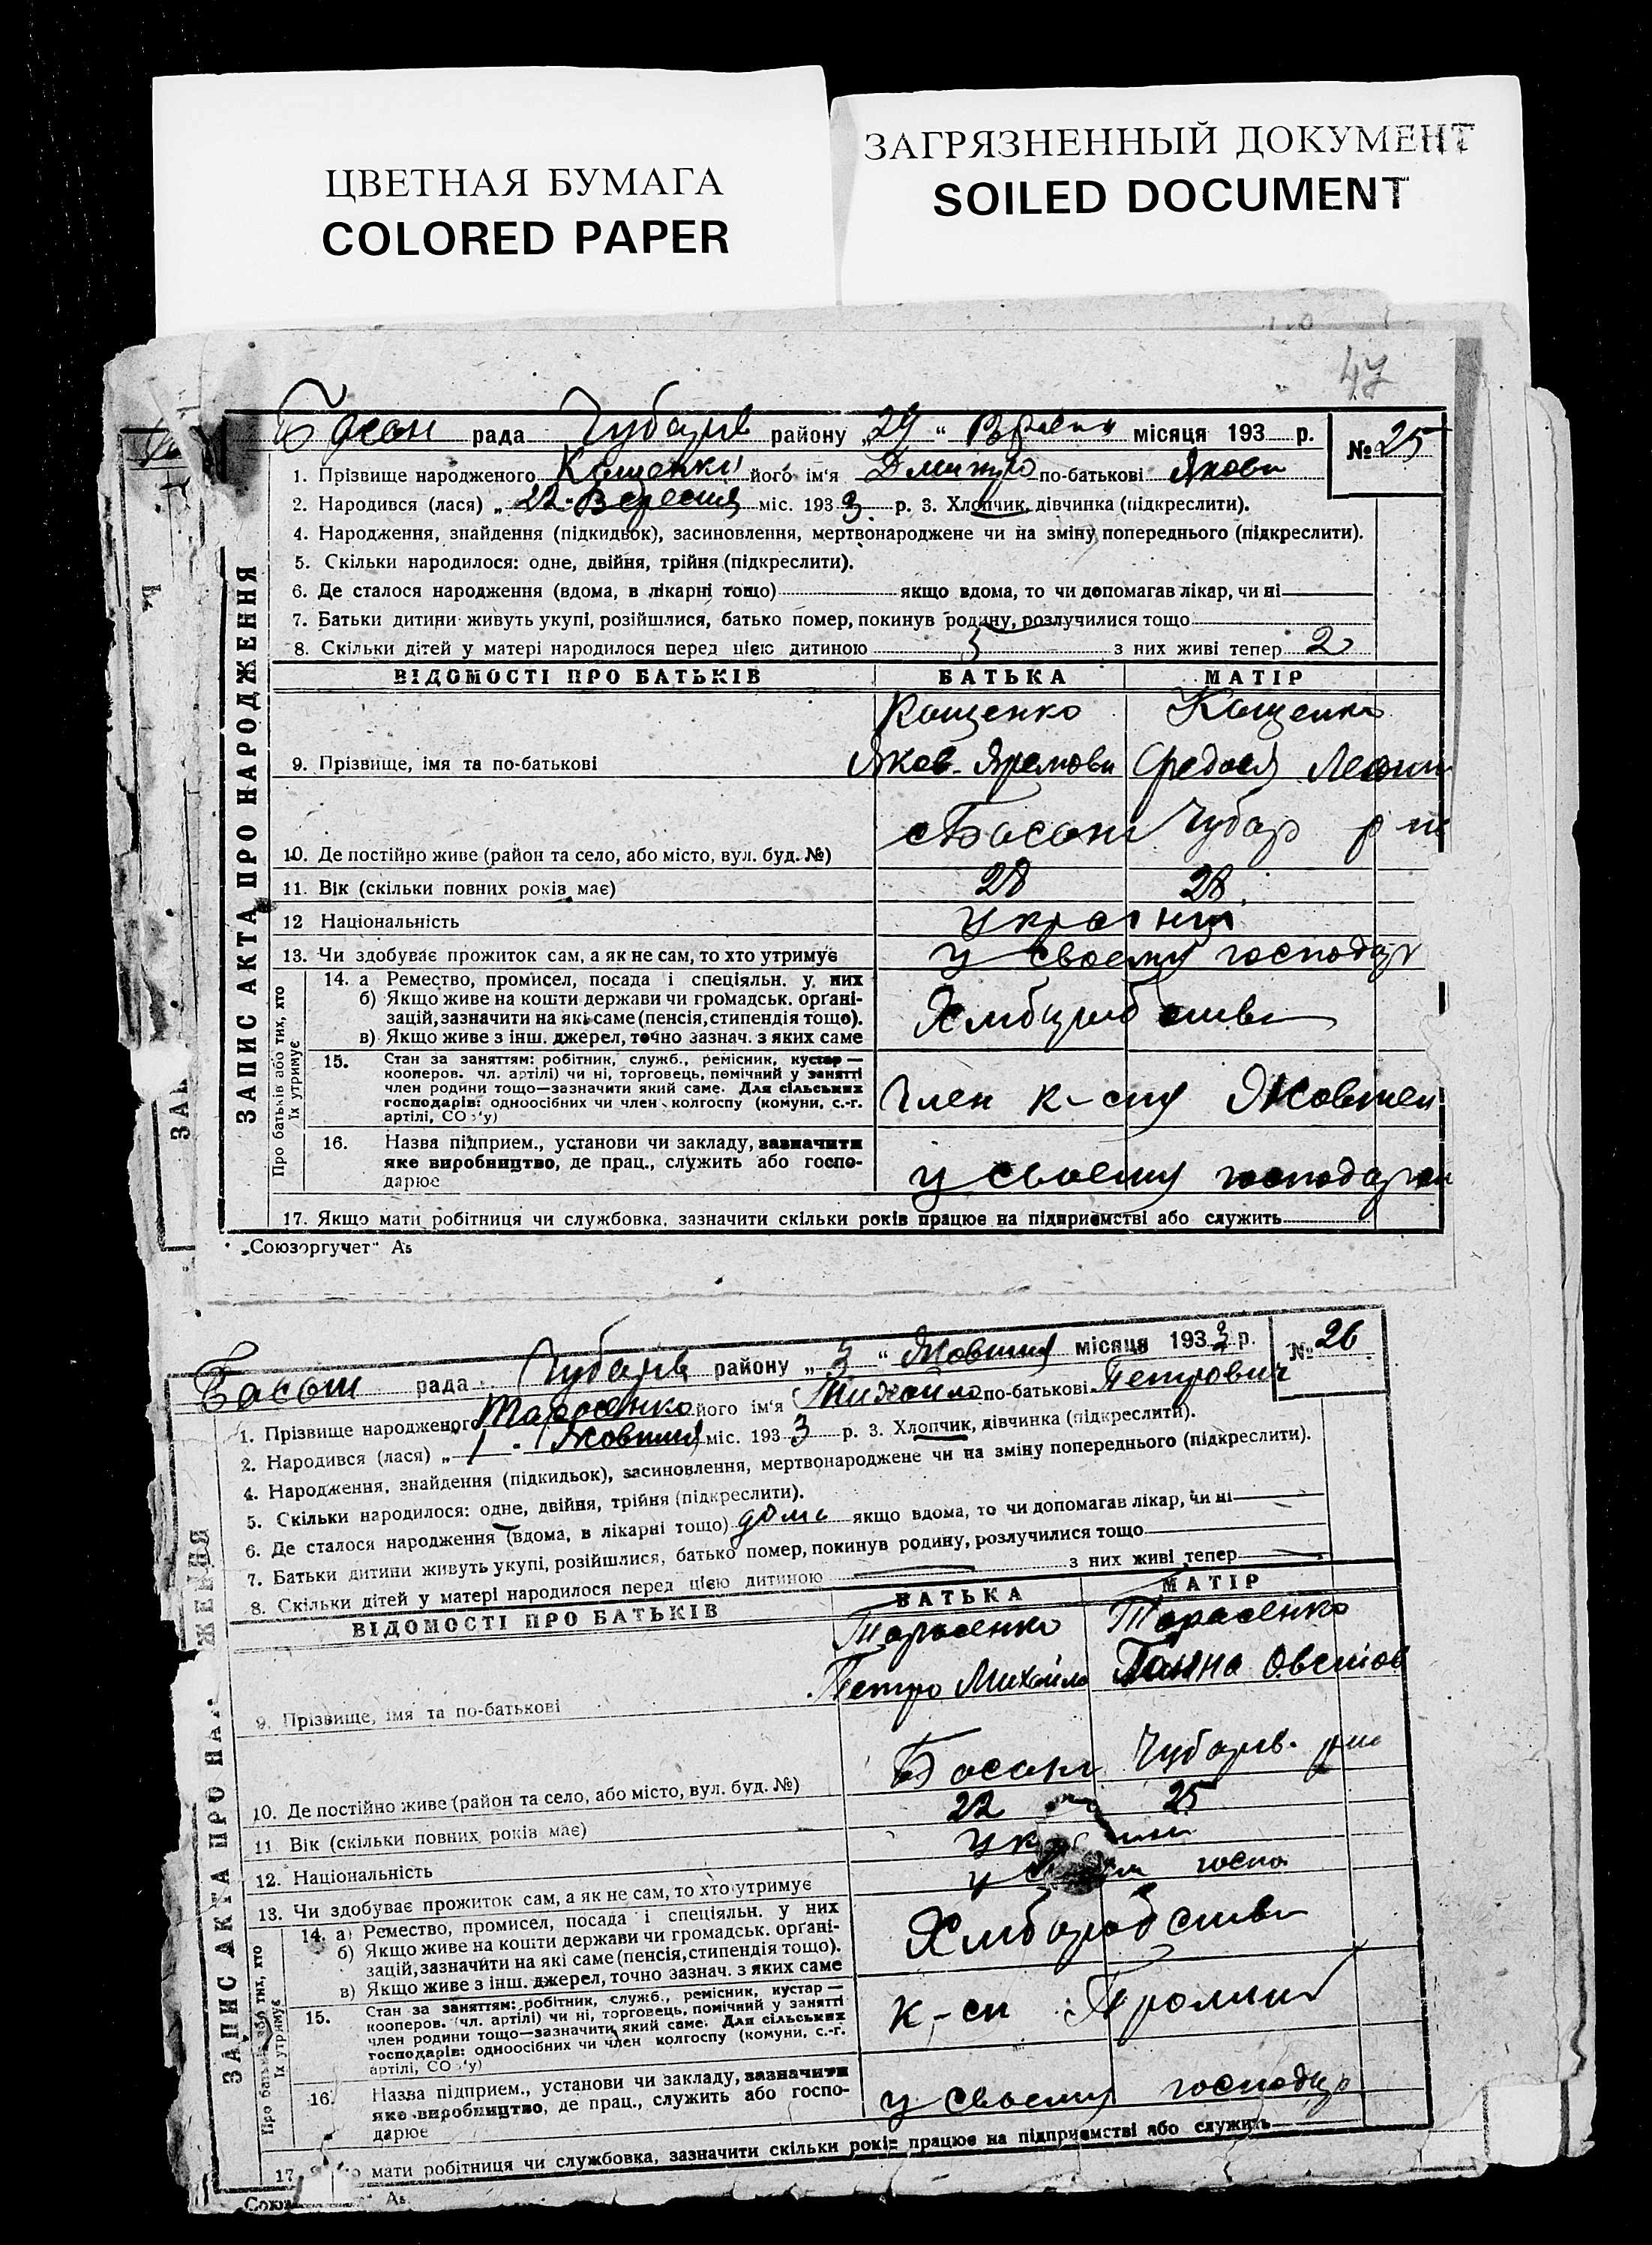 ЦВЕТНАЯ БУМАГА
COLORED PAPER
ЗАГРЯЗНЕННЫЙ ДОКУМЕНТ
SOILED DOCUMENT
47
рада Чубарів району „29“ місяця 193 р. № 25
1. Прізвище народженого Кащенко його ім'я Дмитро по-батькові Якови
2. Народився (лася) „22- Вересня міс. 1933 р. 3. Хлопчик, дівчинка (підкреслити).
4. Народження, знайдення (підкидьок), засиновлення, мертвонароджене чи на зміну попереднього (підкреслити).
5. Скільки народилося: одне, двійня, трійня (підкреслити).
6. Де сталося народження (вдома, в лікарні тощо) якщо вдома, то чи допомагав лікар, чи ні
7. Батьки дитини живуть укупі, розійшлися, батько помер, покинув родину, розлучилися тощо
8. Скільки дітей у матері народилося перед цією дитиною з них живі тепер 2
ВІДОМОСТІ ПРО БАТЬКІВ БАТЬКА МАТІР
Кащенко Кащенко
9. Прізвище, імя та по-батькові Яков Яремови Федося
10. Де постійно живе (район та село, або місто, вул. буд. №) с Басань Чубар
11. Вік (скільки повних років має) 28 28
12 Національність
13. Чи здобуває прожиток сам, а як не сам, то хто утримує у своему господар
ЗАПИС АКТА ПРО НАРОДЖЕННЯ
Про батьків або тих, хто
їх утримує
14. а Ремество, промисел, посада і спеціяльн. у них
б) Якщо живе на кошти держави чи громадськ. органі-
зацій, зазначити на які саме (пенсія, стипендія тощо).
в) Якщо живе з інш. джерел, точно зазнач. з яких саме
Хлиборобство
15. Стан за заняттям: робітник, служб., ремісник, кустар—
кооперов. чл. артілі) чи ні, торговець, помічний у занятті
член родини тощо—зазначити який саме. Для сільських
господарів: одноосібних чи член колгоспу (комуни, с.-г.
артілі, СОЗ'у)
Член к-спу Жовтен
16. Назва підприєм., установи чи закладу, зазначити
яке виробництво, де прац., служить або госпо-
дарює
у своему господарст
17. Якщо мати робітниця чи службовка, зазначити скільки років працює на підприємстві або служить
„Союзоргучет“ Аз
Басань рада Чубарів району „3“ Жовтня місяця 1933 р. № 26
1. Прізвище народженого Тарасенко його ім'я Михайло по-батькові Петрович
2. Народився (лася) „1- Жовтня міс. 1933 р. 3. Хлопчик, дівчинка (підкреслити).
4. Народження, знайдення (підкидьок), засиновлення, мертвонароджене чи на зміну попереднього (підкреслити).
5. Скільки народилося: одне, двійня, трійня (підкреслити).
6. Де сталося народження (вдома, в лікарні тощо) дома якщо вдома, то чи допомагав лікар, чи ні
7. Батьки дитини живуть укупі, розійшлися, батько помер, покинув родину, розлучилися тощо
8. Скільки дітей у матері народилося перед цією дитиною з них живі тепер
ВІДОМОСТІ ПРО БАТЬКІВ БАТЬКА МАТІР
Тарасенко Тарасенко
9. Прізвище, імя та по-батькові Петро Михайло Ганна
10. Де постійно живе (район та село, або місто, вул. буд. №) Басань Чубарів.
11 Вік (скільки повних років має) 22 25
12. Національність
13. Чи здобуває прожиток сам, а як не сам, то хто утримує у госпо
14. а) Ремество, промисел, посада і спеціяльн. у них
б) Якщо живе на кошти держави чи громадськ. органі-
зацій, зазначити на які саме (пенсія, стипендія тощо).
в) Якщо живе з інш. джерел, точно зазнач. з яких саме
Хлиборобство
15. Стан за заняттям: робітник, служб., ремісник, кустар—
кооперов. чл. артілі) чи ні, торговець, помічний у занятті
член родини тощо—зазначити який саме. Для сільських
господарів: одноосібних чи член колгоспу (комуни, с.-г.
артілі, СОЗ'у)
к-сп
16. Назва підприєм., установи чи закладу, зазначити
яке виробництво, де прац., служить або госпо-
дарює
у своему господар
17. мати робітниця чи службовка, зазначити скільки років працює на підприємстві або служить